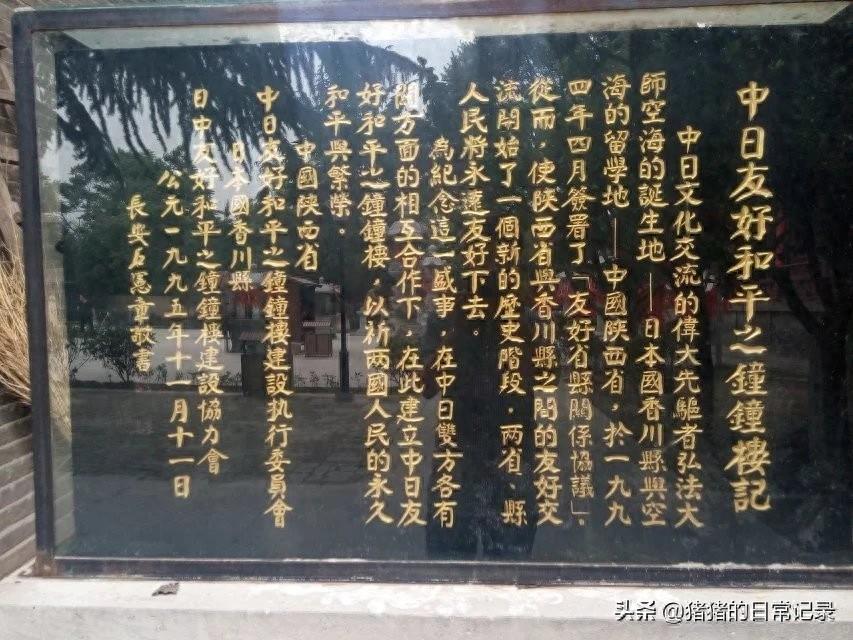 中日友好和平之鐘鐘樓記
中日文化交流的偉大先驅者弘法大
師空海的誕生地——日本國香川縣與空
海的留學地——中國陝西省，於一九九
四年四月簽署了「友好省縣關係協議」。
從而，使陝西省與香川縣之間的友好交
流開始了一個新的歷史階段，兩省、縣
人民將永遠友好下去。
為紀念這一盛事，在中日雙方各有
關方面的相互合作下，在此建立中日友
好和平之鐘鐘樓，以祈兩國人民的永久
和平與繁榮。
中國陝西省
中日友好和平之鐘鐘樓建設執行委員會
日本國香川縣
日中友好和平之鐘鐘樓建設協力會
公元一九九五年十一月十一日
長安丘憲童敬書
头条 @猪猪的日常记录